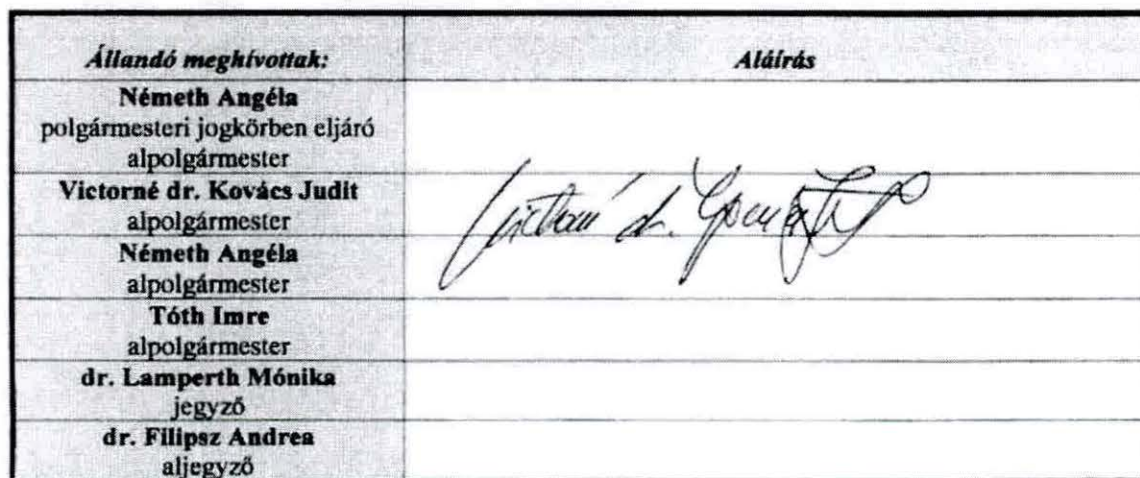 Állandó meghívottak: Aláírás
Németh Angéla
polgármesteri jogkörben eljáró
alpolgármester
Victorné dr. Kovács Judit
alpolgármester
Victorné dr. Kovács Judit
Németh Angéla
alpolgármester
Tóth Imre
alpolgármester
dr. Lamperth Mónika
jegyző
dr. Filipsz Andrea
aljegyző